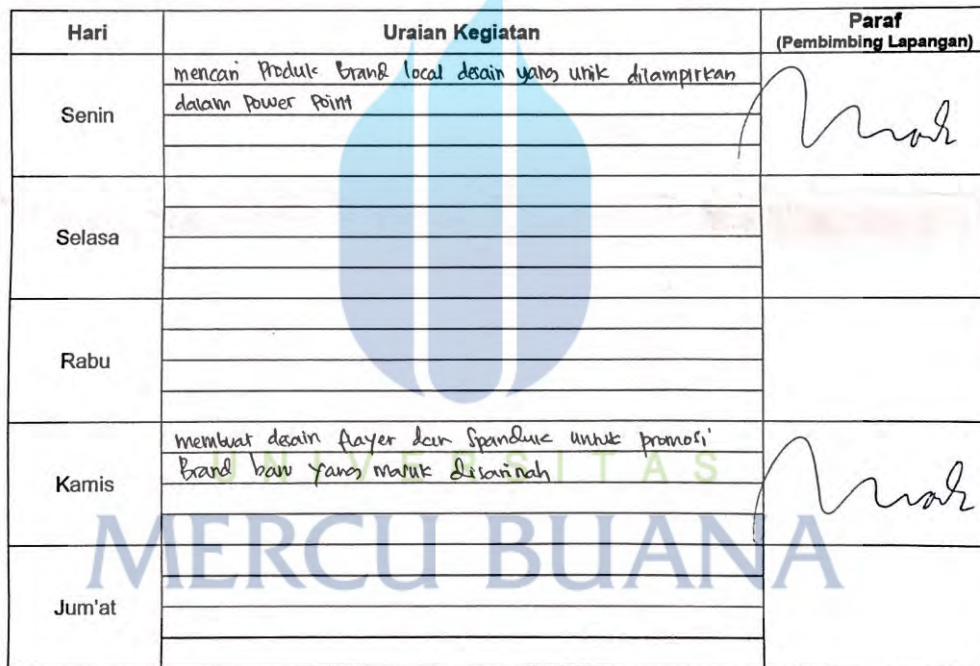 Hari Uraian Kegiatan Paraf
(Pembimbing Lapangan)
Senin
mencari Produk brand local desain yang unik dilampirkan
dalam Power Point
Selasa
Rabu
Kamis
membuat desain flayer dan Spanduk untuk promosi
Brand baru yang masuk disarinah
UNIVERSITAS
MERCU BUANA
Jum'at